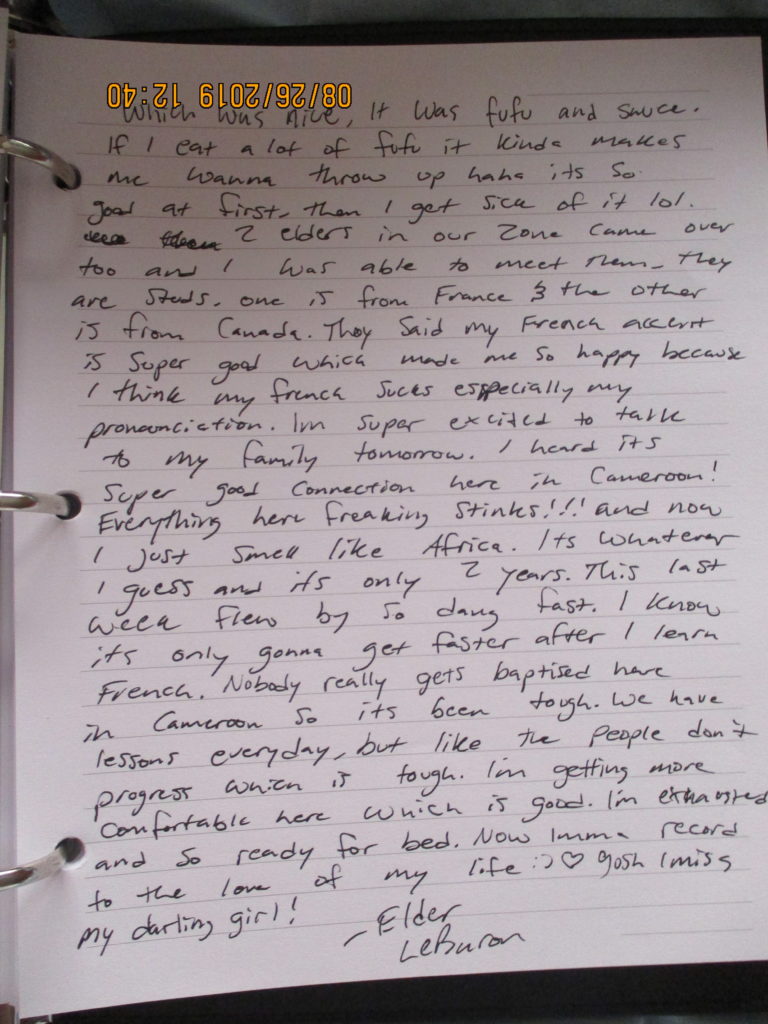 08/26/2019 12:40
which was nice, It was fufu and sauce.
If I eat a lot of fufu it kinda makes
me wanna throw up haha its so
good at first, then I get sick of it lol.
2 elders in our zone came over
too and I was able to meet them. They
are studs. one is from France & the other
is from Canada. They said my French accent
is super good which made me so happy because
I think my french sucks esspecially my
pronounciation. Im super excited to talk
to my family tomorrow. I heard its
super good connection here in Cameroon!
Everything here freaking stinks!!! and now
I just smell like Africa. Its whatever
I guess and its only 2 years. This last
week flew by so dang fast. I know
its only gonna get faster after I learn
French. Nobody really gets baptised here
in Cameroon so its been tough. We have
lessons everyday, but like the people don't
progress which is tough. I'm getting more
comfortable here which is good. I'm exhausted
and so ready for bed. Now Imma record
to the love of my life :) ♡ gosh I miss
my darling girl!
- Elder
LeBaron